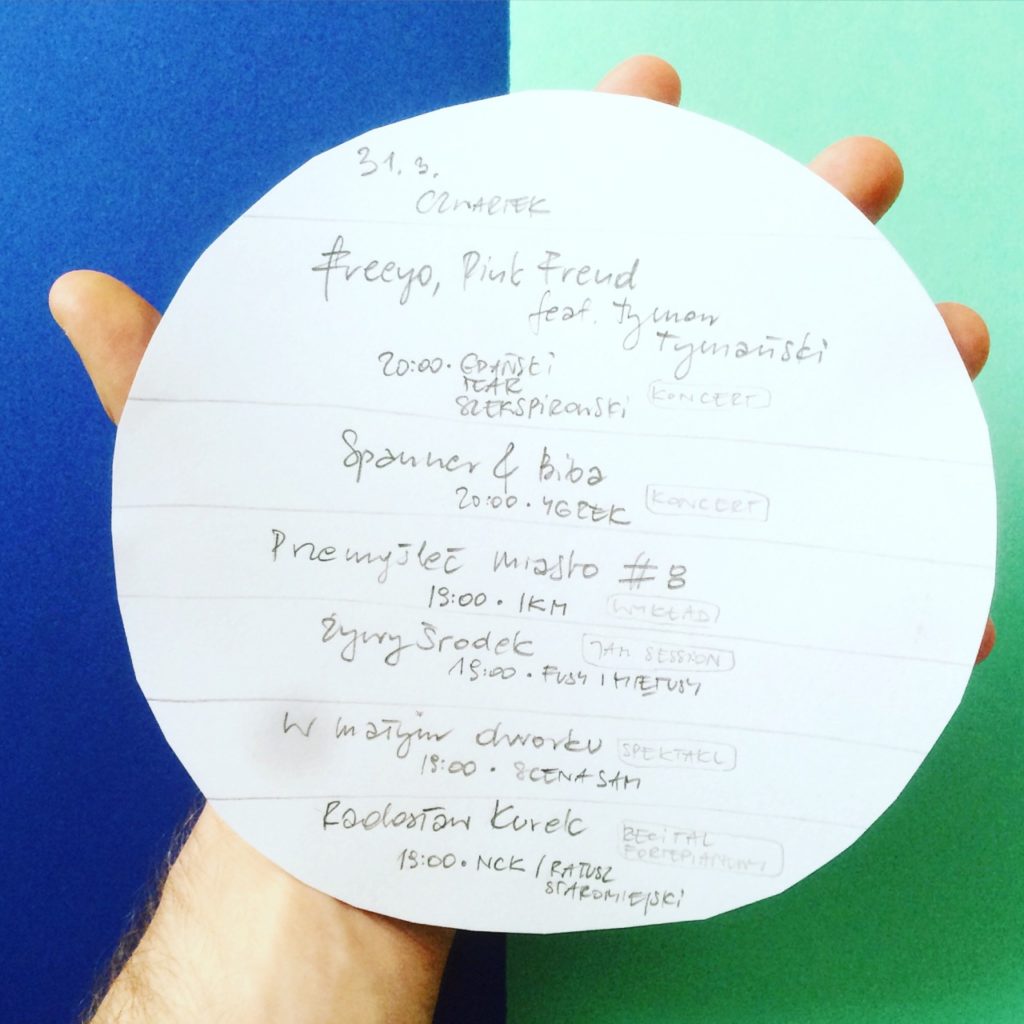 31.3.
CZWARTEK
Freeyo, Pink Freud
feat. Tymon
Tymański
20:00 • GDAŃSKI
TEATR
SZEKSPIROWSKI
KONCERT
Spanner & Biba
20:00 • YGREK
KONCERT
Przemyśleć miasto #8
19:00 • IKM
WYKŁAD
Żywy Środek
JAM SESSION
19:00 • FUSY I MIĘTUSY
W małym dworku
SPEKTAKL
19:00 • SCENA SAM
Radosław Kurek
RECITAL
FORTEPIANOWY
19:00 • NCK / RATUSZ
STAROMIEJSKI